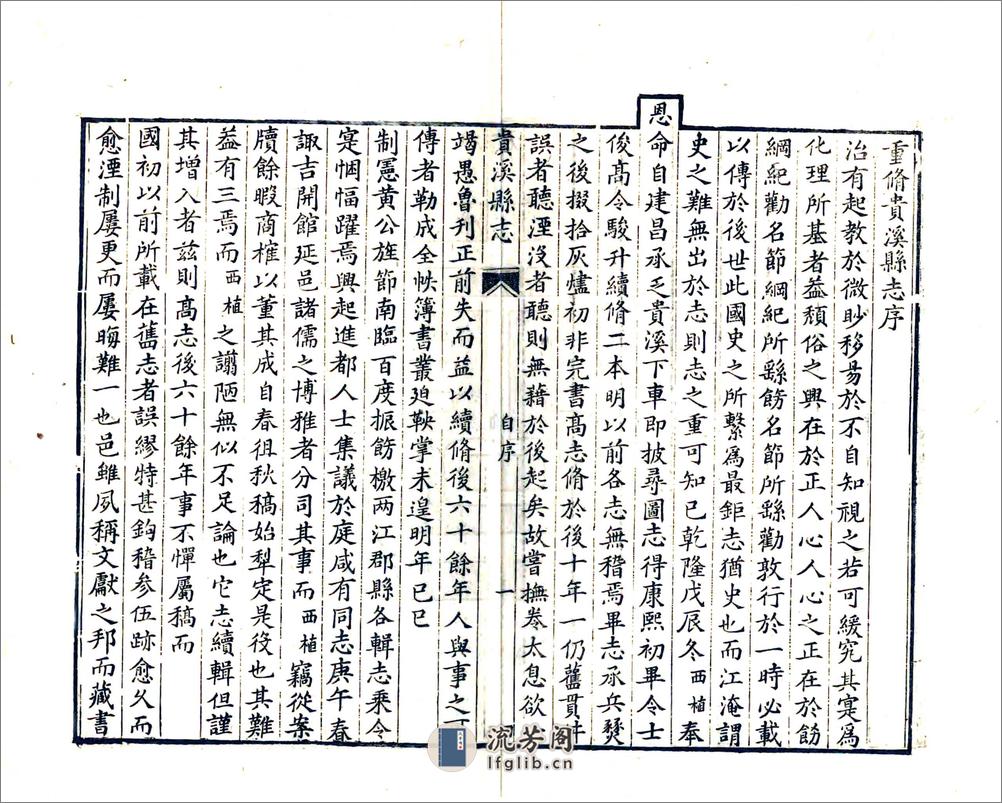 重脩貴溪縣志序
治有起教於微眇移易於不自知視之若可緩究其寔為
化理所基者益頹俗之興在於正人心人心之正在於飭
綱紀勸名節綱紀所繇飭名節所繇勸敦行於一時必載
以傳於後世此國史之所繫為最鉅志猶史也而江淹謂
史之難無出於志則志之重可知已乾隆戊辰冬西植奉
恩命自建昌承乏貴溪下車即披尋圖志得康熙初畢令士
後高令駿升續脩二本明以前各志無稽焉畢志承兵燹
之後掇拾灰燼初非完書高志脩於後十年一仍舊貫舛
誤者聽湮沒者聽則無藉於後起矣故嘗撫卷太息欲
貴溪縣志
自序
一
竭愚魯刊正前失而益以續脩後六十餘年人與事之可
傳者勒成全帙簿書叢迫鞅掌未遑明年己巳
制憲黃公旌節南臨百度振飭檄两江郡縣各輯志乘令
寔悃愊躍焉興起進都人士集議於庭咸有同志庚午春
諏吉開館延邑諸儒之博雅者分司其事而西植竊從案
牘餘暇商榷以董其成自春徂秋稿始犁定是役也其難
益有三焉而西植之謭陋無似不足論也它志續輯但謹
其增入者兹則高志後六十餘年事不憚屬稿而
國初以前所載在舊志者誤繆特甚鉤稽參伍跡愈久而
愈湮制屢更而屢晦難一也邑雖夙稱文獻之邦而藏書
流芳阁
lfglib.cn